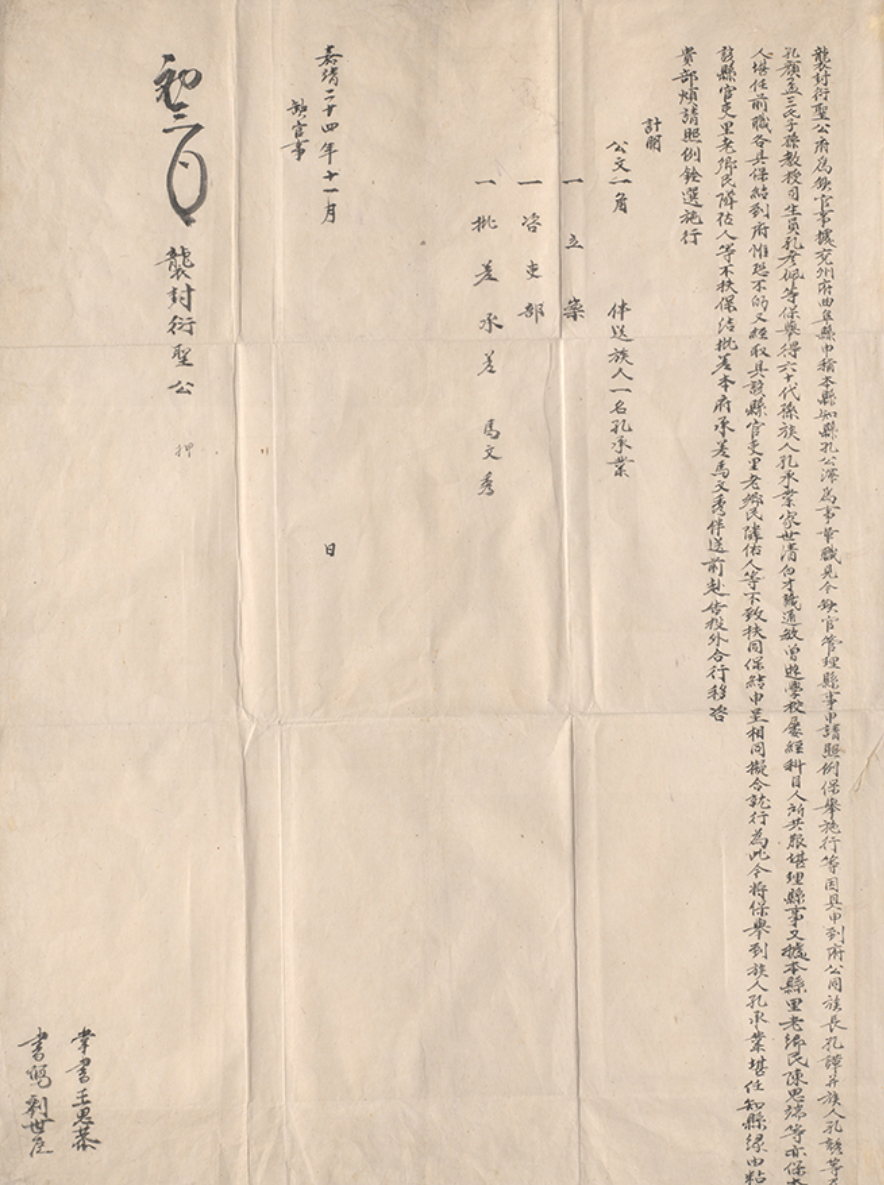 襲封衍聖公府為缺官事據兗州府曲阜縣申稱本縣知縣孔公澤為事革職見今缺官管理縣事申請照例保舉施行等因具申到府公同族長孔譚并族人孔諺等及
孔顏孟三氏子孫教授司生員孔彥佩等保舉得六十代孫族人孔承業家世清白才識通敏曾遊學校屢經科目人所共服堪理縣事又據本縣里老鄉民陳思端等亦保本
人堪任前職各具保結到府惟恐不的又經取具該縣官吏里老鄉民隣佑人等不致扶同保結申呈相同擬合就行為此今將保舉到族人孔承業堪任知縣緣由粘
該縣官吏里老鄉民隣佑人等不扶保結批差本府承差馬文秀伴送前赴告投外合行移咨
貴部煩請照例銓選施行
計開
公文一角 伴送族人一名孔承業
一立案
一咨吏部
一批差承差 馬文秀
嘉靖二十四年十一月 日
缺官事
初三日
襲封衍聖公 押
掌書王思恭
書寫劉世